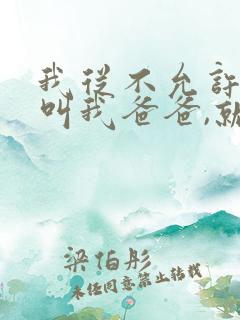 我從不允許
叫我爸爸,就
梁伯彤
未经同意禁止转载